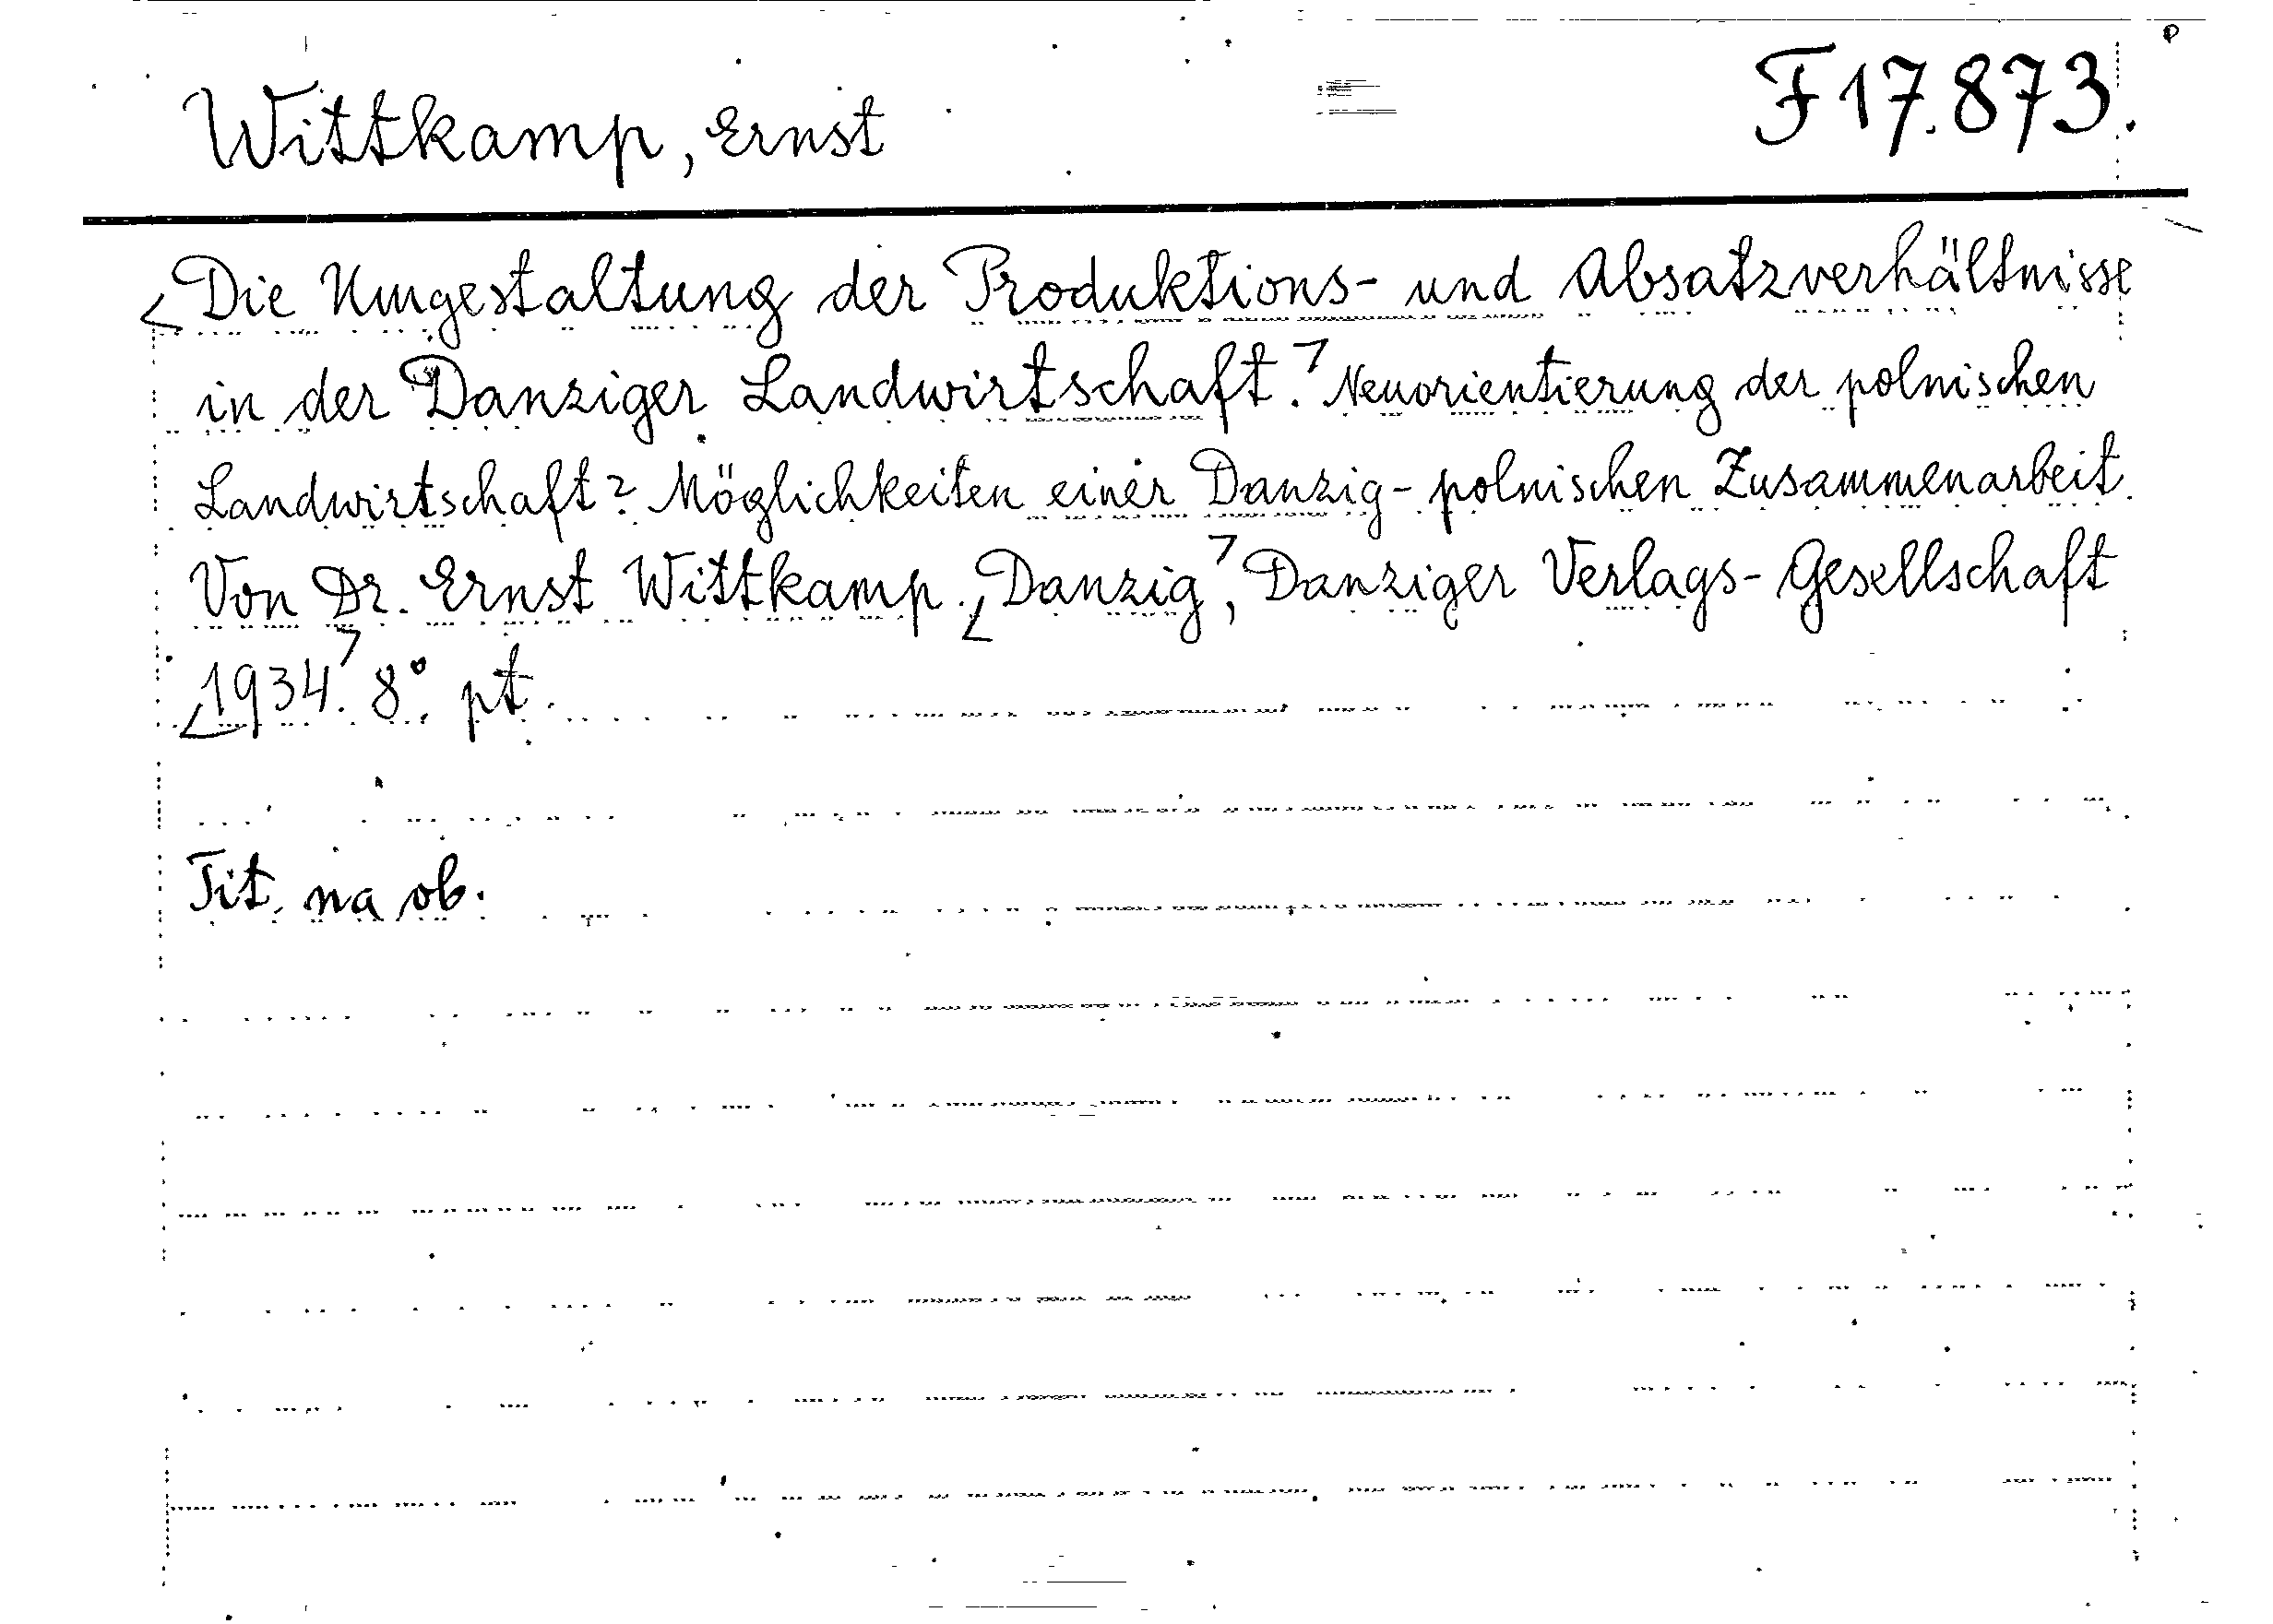 Wittkamp, Ernst
F 17.873.
<Die Umgestaltung der Produktions- und Absatzverhältnisse
in der Danziger Landwirtschaft.> Neuorientierung der polnischen
Landwirtschaft? Möglichkeiten einer Danzig-polnischen Zusammenarbeit.
Von Dr. Ernst Wittkamp. <Danzig>, Danziger Verlags-Gesellschaft
<1934>. 8°. pt.
Tit. na ob.